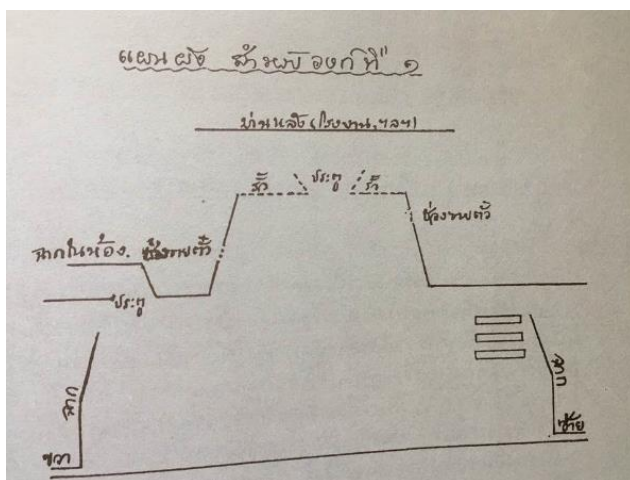 แผนผัง สำหรับองก์ที่ ๑
ม่านหลัง (โรงงาน, ฯลฯ)
รั้ว ประตู รั้ว
ช่องขายตั๋ว
ฉากในห้อง. ช่องขายตั๋ว
ประตู
ฉาก
ฉาก
ขวา
ซ้าย